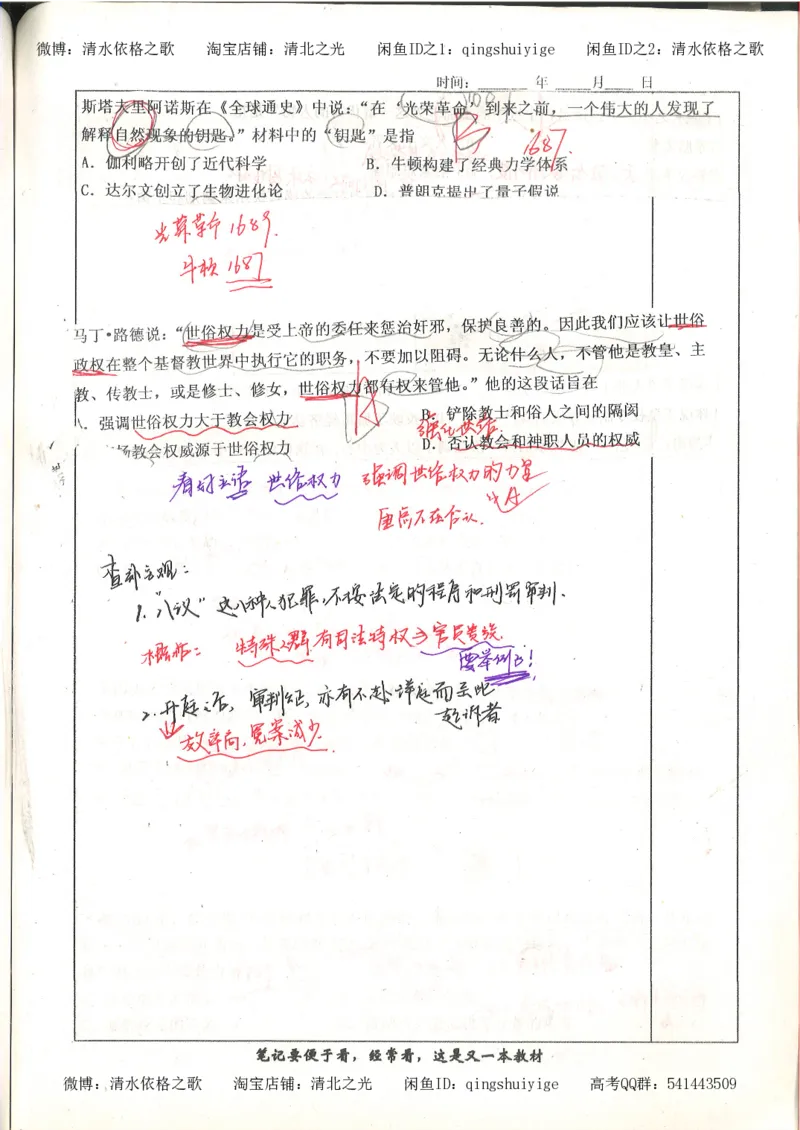 微博：清水依格之歌 淘宝店铺：清北之光 闲鱼ID之1：qingshuiyige 闲鱼ID之2：清水依格之歌
时间：______ 年 ____月____ 日
斯塔夫里阿诺斯在《全球通史》中说：“在‘光荣革命’到来之前，一个伟大的人发现了
解释自然现象的钥匙。”材料中的“钥匙”是指
B 1687
A．伽利略开创了近代科学 B．牛顿构建了经典力学体系
C．达尔文创立了生物进化论 D．普朗克提出了量子假说
光荣革命1689．
牛顿1687
马丁•路德说：“世俗权力是受上帝的委任来惩治奸邪，保护良善的。因此我们应该让世俗
政权在整个基督教世界中执行它的职务，不要加以阻碍。无论什么人，不管他是教皇、主
教、传教士，或是修士、修女，世俗权力都有权来管他。”他的这段话旨在
A．强调世俗权力大于教会权力 B．铲除教士和俗人之间的隔阂
强化世俗．
教会权威源于世俗权力 D．否认教会和神职人员的权威
看好主语 世俗权力 强调世俗权力的力量
重点不在否认．
选A
查补主观：
1．“八议”这八种人犯罪，不按法定的程序和刑罚审判．
特殊人群有司法特权⇒官员贵族．
要举例子！
2．开庭之后，审判经，亦有不赴详庭而亲见
起诉者
效率高，冤案减少．
笔记要便于看，经常看，这是又一本教材
微博：清水依格之歌 淘宝店铺：清北之光 闲鱼ID：qingshuiyige 高考QQ群：541443509